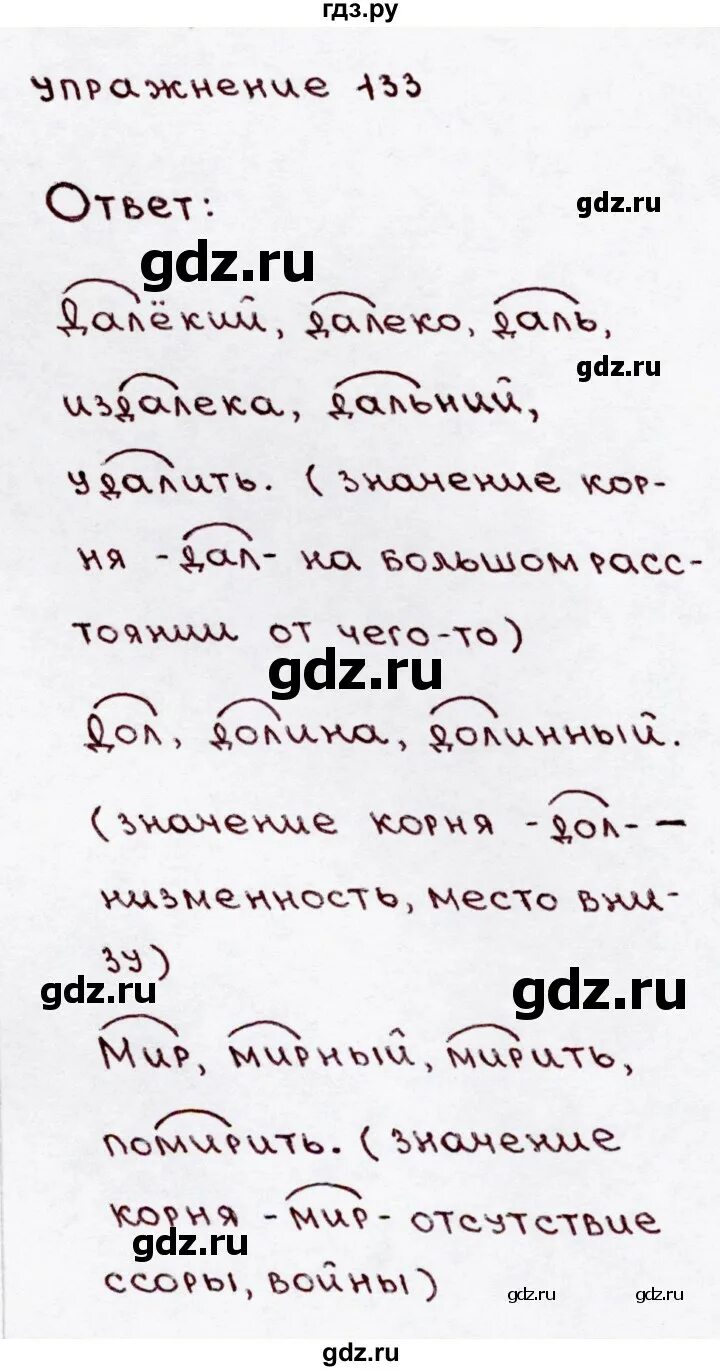 гдз.ру
упражнение 133
Ответ:
gdz.ru
gdz.ru
Далёкий, далеко, даль,
gdz.ru
издалека, дальний,
удалить. (значение кор-
ня -дал- на большом расс-
тоянии от чего-то)
gdz.ru
Дол, долина, долинный.
(значение корня -дол- –
низменность, место вни-
зу)
gdz.ru
gdz.ru
Мир, мирный, мирить,
помирить. (значение
корня -мир- отсутствие
gdz.ru
ссоры, войны)
gdz.ru
gdz.ru
gdz.ru